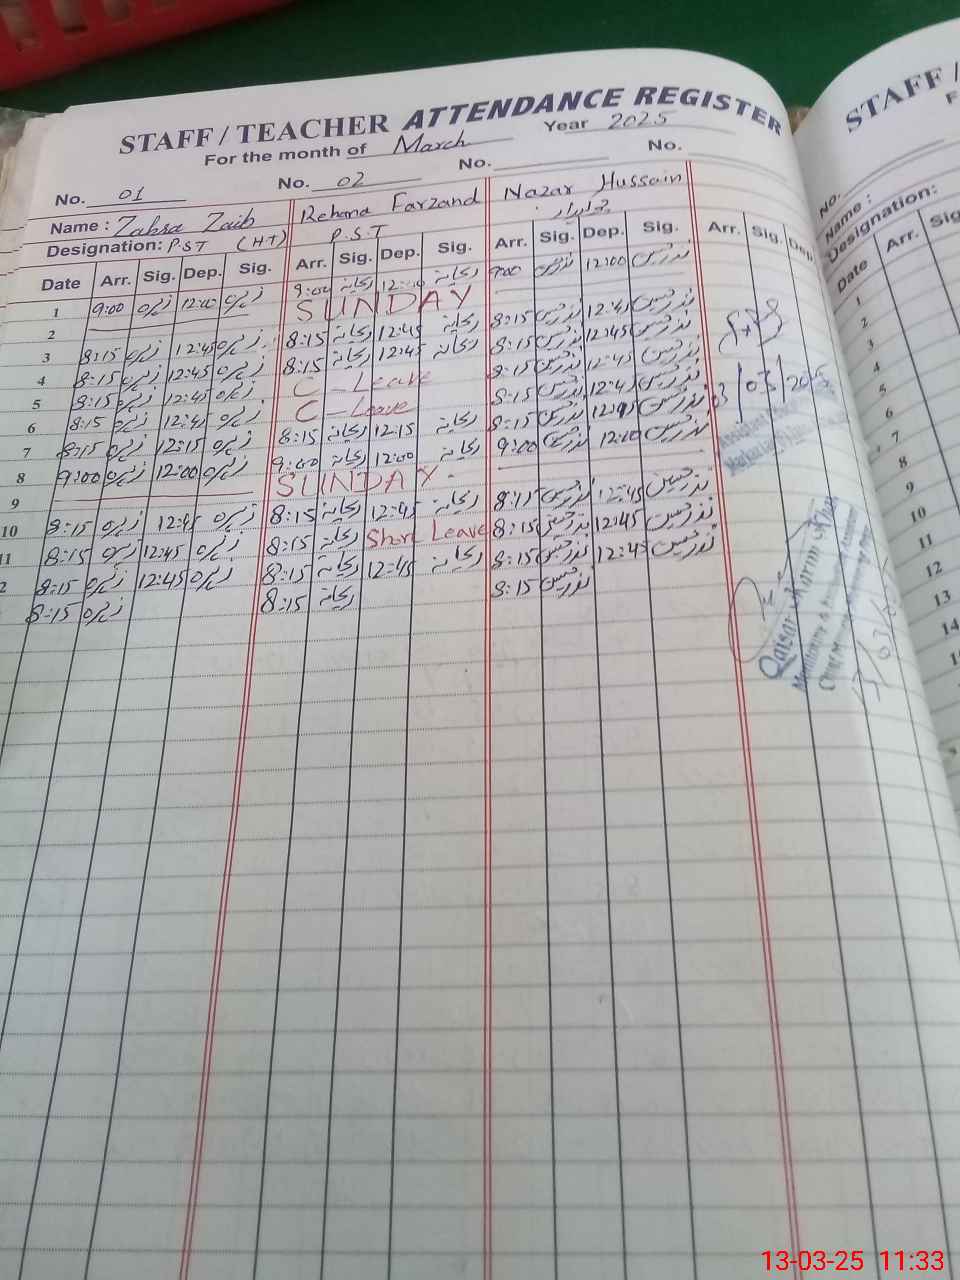 STAFF / TEACHER ATTENDANCE REGISTER
For the month of March Year 2025
No. 01 No. 02 No. No.
Name : Zahra Zaib Rehana Farzand Nazar Hussain
Designation: P.S.T (HT) P.S.T
Date Arr. Sig. Dep. Sig. Arr. Sig. Dep. Sig. Arr. Sig. Dep. Sig. Arr. Sig. Dep.
1 9:00 زہرہ 12:00 زہرہ 9:00 ریحانہ 12:00 ریحانہ 9:00 نذرحسین 12:00 نذرحسین
2 SUNDAY
3 8:15 زہرہ 12:45 زہرہ 8:15 ریحانہ 12:45 ریحانہ 8:15 نذرحسین 12:45 نذرحسین
4 8:15 زہرہ 12:45 زہرہ 8:15 ریحانہ 12:45 ریحانہ 8:15 نذرحسین 12:45 نذرحسین
5 8:15 زہرہ 12:45 زہرہ C-Leave 8:15 نذرحسین 12:45 نذرحسین
6 8:15 زہرہ 12:45 زہرہ C-Leave 8:15 نذرحسین 12:45 نذرحسین
7 8:15 زہرہ 12:15 زہرہ 8:15 ریحانہ 12:15 ریحانہ 8:15 نذرحسین نذرحسین
8 9:00 زہرہ 12:00 زہرہ 9:00 ریحانہ 12:00 ریحانہ 9:00 نذرحسین 12:00 نذرحسین
9 SUNDAY
10 8:15 زہرہ 12:45 زہرہ 8:15 ریحانہ 12:45 ریحانہ 8:15 نذرحسین 12:45 نذرحسین
11 8:15 زہرہ 12:45 زہرہ 8:15 ریحانہ Short Leave 8:15 نذرحسین 12:45 نذرحسین
2 8:15 زہرہ 12:45 زہرہ 8:15 ریحانہ 12:45 ریحانہ 8:15 نذرحسین 12:45 نذرحسین
8:15 زہرہ 8:15 ریحانہ 8:15 نذرحسین
03/03/2025
Qaisar Karim Khan
STAFF /
No.
Name :
Designation:
Date Arr. Sig
1
2
3
4
5
6
7
8
9
10
11
12
13
14
13-03-25 11:33